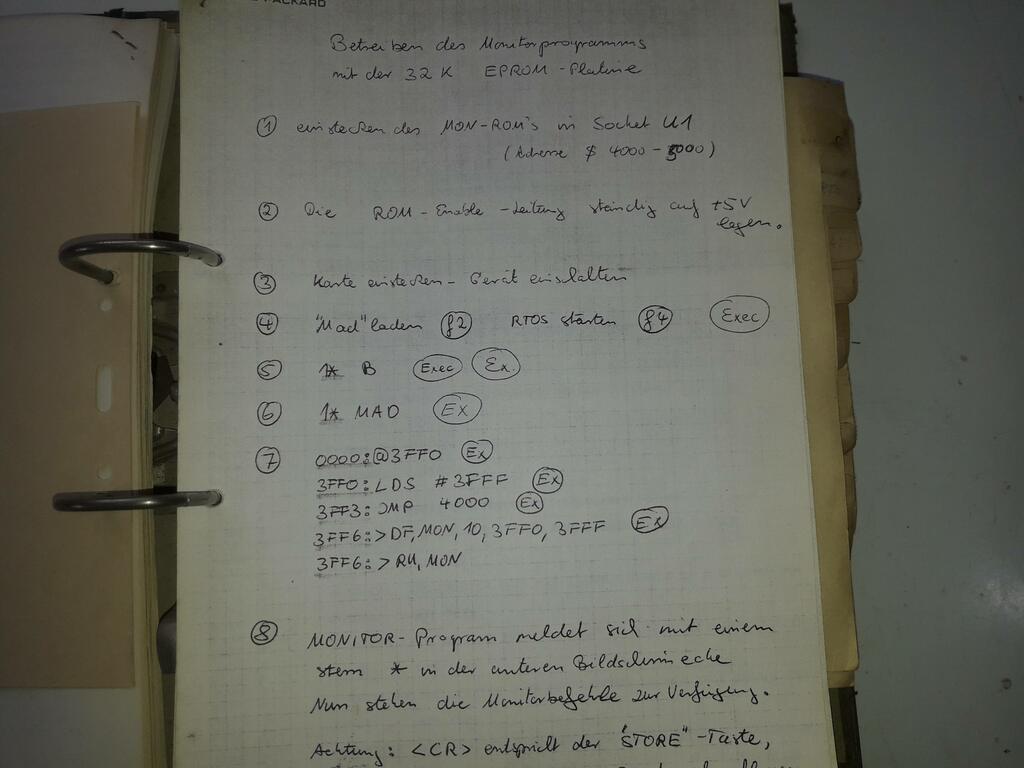 PACKARD
Betreiben des Monitorprogramms
mit der 32 K EPROM-Platine
① einstecken des MON-ROM's in Socket U1
(Adresse $ 4000 - 5000)
② Die ROM-Enable-Leitung ständig auf +5V
legen.
③ Karte einstecken - Gerät einschalten
④ "Mad" laden f2 RTOS starten f4 Exec
⑤ 1* B Exec Ex.
⑥ 1* MAD EX
⑦ 0000:@3FF0 Ex
3FF0:LDS #3FFF Ex
3FF3:JMP 4000 Ex
3FF6:>DF,MON,10,3FF0,3FFF Ex
3FF6:>RU,MON
⑧ MONITOR-Program meldet sich mit einem
stern * in der unteren Bildschirmecke
Nun stehen die Monitorbefehle zur Verfügung.
Achtung: <CR> entspricht der "STORE"-Taste,